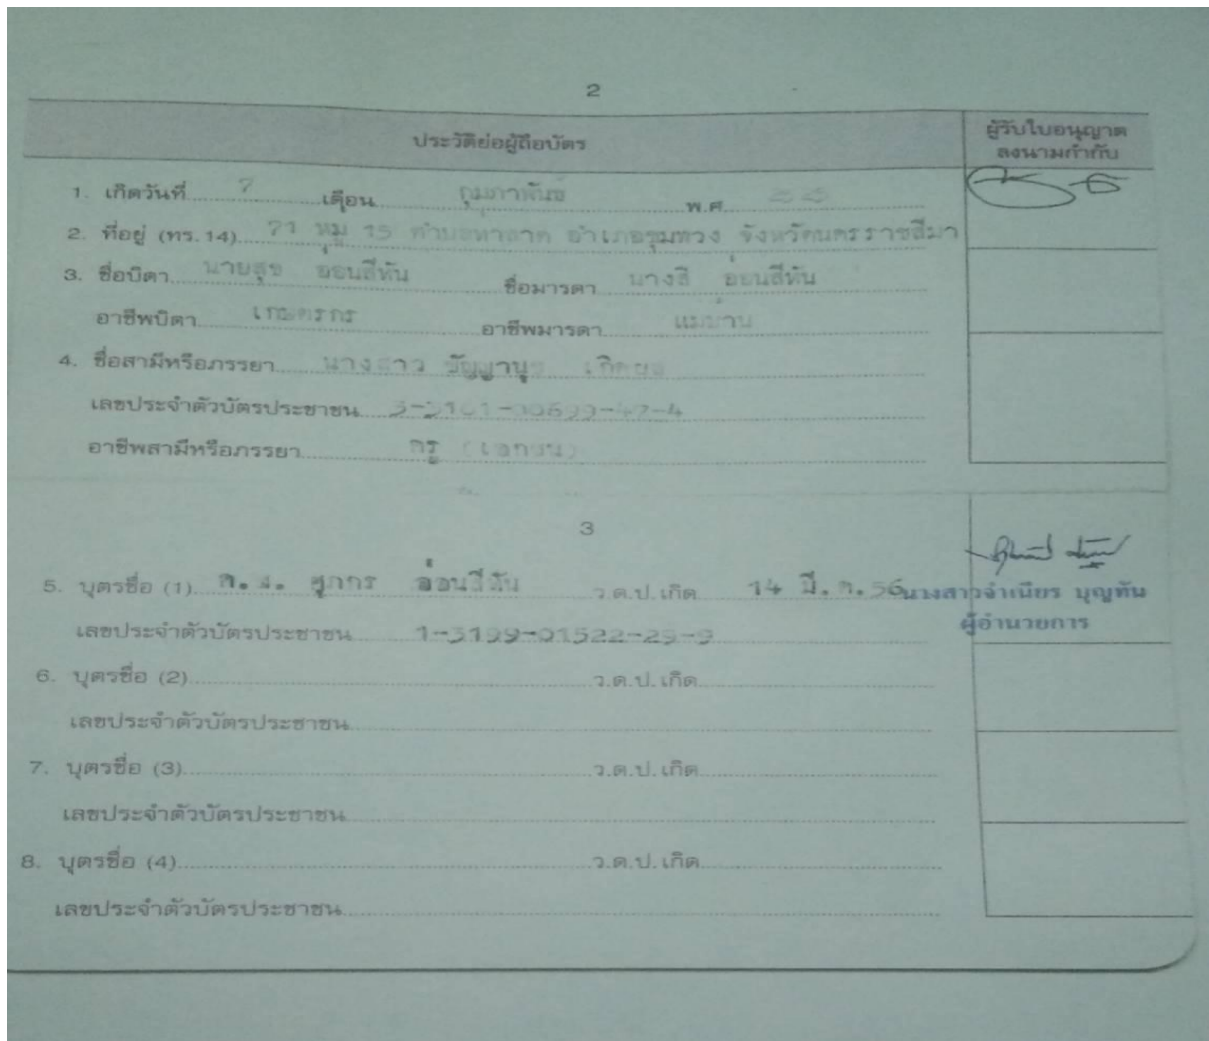 2
ประวัติย่อผู้ถือบัตร
ผู้รับใบอนุญาต
ลงนามกำกับ
1. เกิดวันที่ 7 เดือน กุมภาพันธ์ พ.ศ.
2. ที่อยู่ (ทร.14) 71 หมู่ 15 ตำบลท่าลาด อำเภอชุมพวง จังหวัดนครราชสีมา
3. ชื่อบิดา นายสุข อ่อนสีหัน ชื่อมารดา นางสี อ่อนสีหัน
อาชีพบิดา เกษตรกร อาชีพมารดา แม่บ้าน
4. ชื่อสามีหรือภรรยา นางสาว
เลขประจำตัวบัตรประชาชน
อาชีพสามีหรือภรรยา ครู (เอกชน)
3
5. บุตรชื่อ (1) ศุภกร อ่อนสีหัน ว.ด.ป. เกิด 14 มี.ค.56
นางสาวจำเนียร บุญทัน
เลขประจำตัวบัตรประชาชน 1-3199-01522-29-9
ผู้อำนวยการ
6. บุตรชื่อ (2) ว.ด.ป. เกิด
เลขประจำตัวบัตรประชาชน
7. บุตรชื่อ (3) ว.ด.ป. เกิด
เลขประจำตัวบัตรประชาชน
8. บุตรชื่อ (4) ว.ด.ป. เกิด
เลขประจำตัวบัตรประชาชน